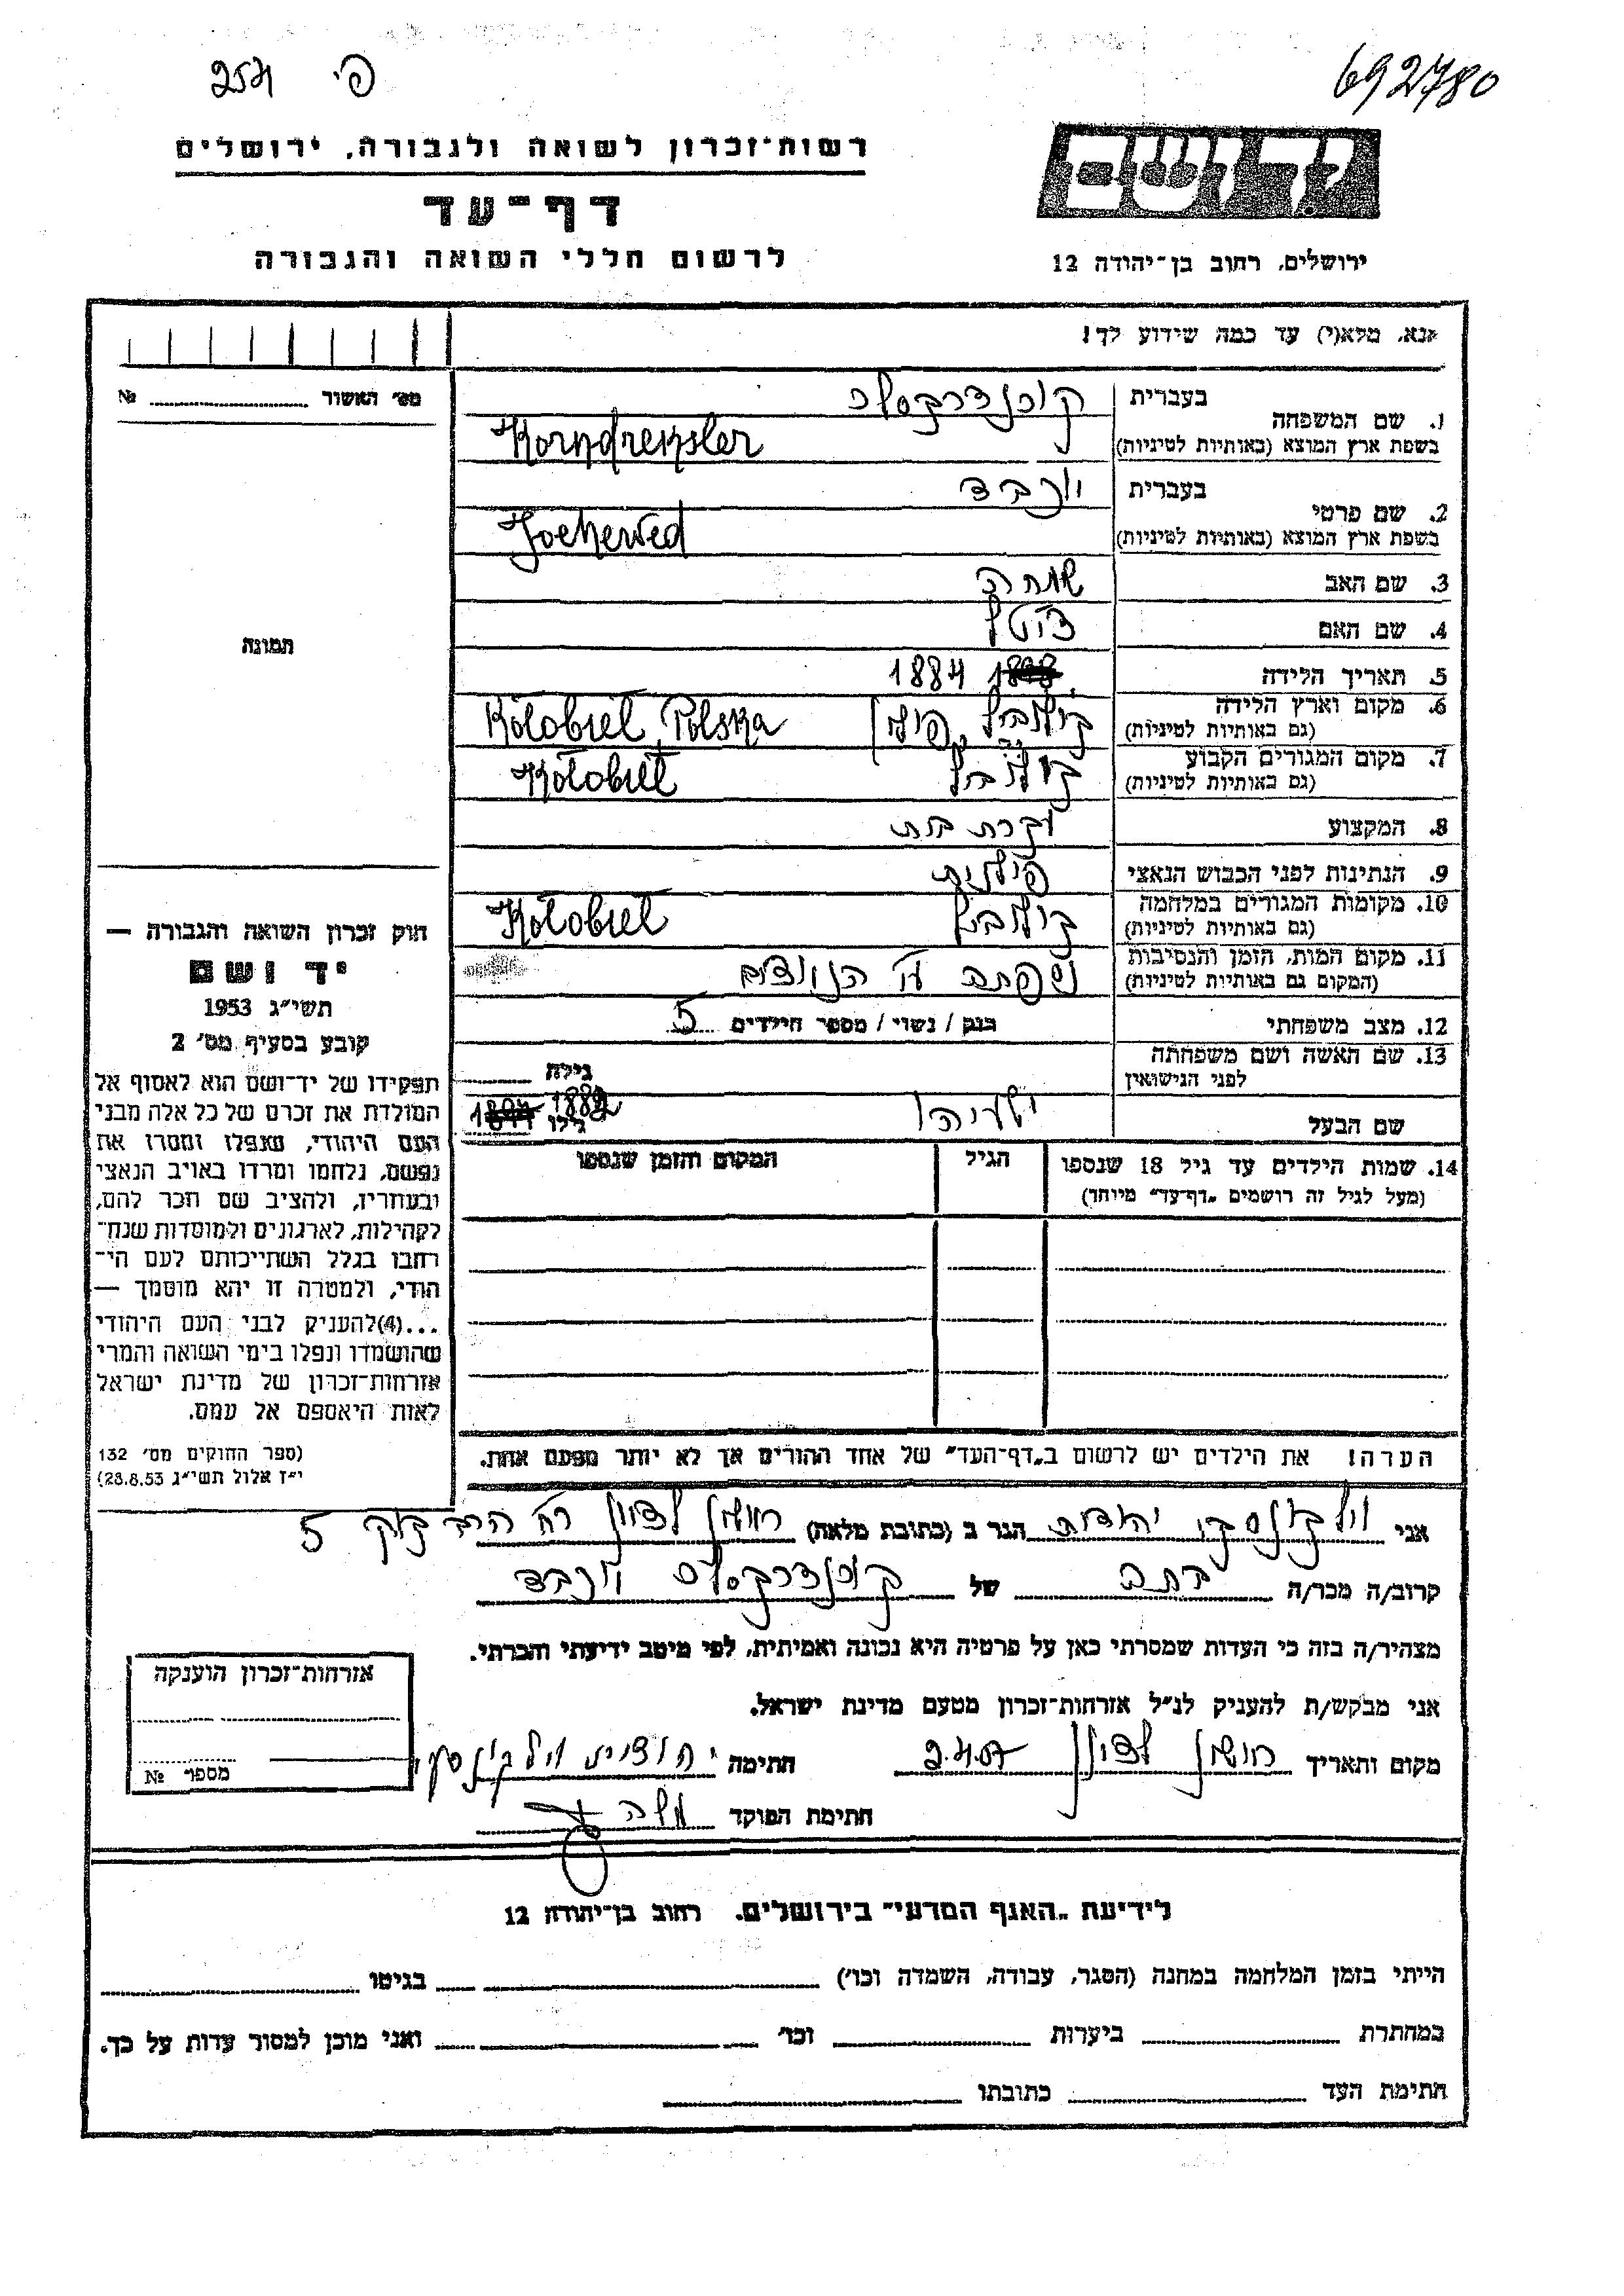 692780
פ' 254
ידושם
רשות־זכרון לשואה ולגבורה, ירושלים
דף־עד
לרשום חללי השואה והגבורה
ירושלים, רחוב בן־יהודה 12
נא, מלא(י) עד כמה שידוע לך!
מס' האשור №
1. שם המשפחה
בעברית
קורנדרקסלר
בשפת ארץ המוצא (באותיות לטיניות)
Korndreksler
2. שם פרטי
בעברית
יוכבד
בשפת ארץ המוצא (באותיות לטיניות)
Jochewed
3. שם האב שמחה
4. שם האם
5. תאריך הלידה 1884
6. מקום וארץ הלידה
(גם באותיות לטיניות)
קולביל, פולין Kolobiel Polska
7. מקום המגורים הקבוע
(גם באותיות לטיניות)
קולביל Kolobiel
8. המקצוע עקרת בית
9. הנתינות לפני הכבוש הנאצי פולנית
10. מקומות המגורים במלחמה
(גם באותיות לטיניות)
קולביל Kolobiel
11. מקום המות, הזמן והנסיבות
(המקום גם באותיות לטיניות)
נשרפה ע"י הנאצים
12. מצב משפחתי רווק / נשוי / מספר הילדים 5
13. שם האשה ושם משפחתה
לפני הנישואין
גילה
שם הבעל ישעיהו גילו 1882
14. שמות הילדים עד גיל 18 שנספו
(מעל לגיל זה רושמים „דף־עד" מיוחד)
הגיל
המקום והזמן שנספו
תמונה
חוק זכרון השואה והגבורה —
יד ושם
תשי"ג 1953
קובע בסעיף מס' 2
תפקידו של יד־ושם הוא לאסוף אל
המולדת את זכרם של כל אלה מבני
העם היהודי, שנפלו ומסרו את
נפשם, נלחמו ומרדו באויב הנאצי
ובעוזריו, ולהציב שם וזכר להם,
לקהילות, לארגונים ולמוסדות שנח־
רבו בגלל השתייכותם לעם הי־
הודי, ולמטרה זו יהא מוסמך —
...(4)להעניק לבני העם היהודי
שהושמדו ונפלו בימי השואה והמרי
אזרחות־זכרון של מדינת ישראל
לאות היאספם אל עמם.
(ספר החוקים מס' 132
י"ז אלול תשי"ג 28.8.53)
הערה! את הילדים יש לרשום ב„דף־העד" של אחד ההורים אך לא יותר מפעם אחת.
אני וילקונסקי יהודית הגר ב (כתובת מלאה) ראשון לציון רח' הרב קוק 5
קרוב/ה מכר/ה בתה של קורנדרקסלר יוכבד
מצהיר/ה בזה כי העדות שמסרתי כאן על פרטיה היא נכונה ואמיתית, לפי מיטב ידיעתי והכרתי.
אני מבקש/ת להעניק לנ"ל אזרחות־זכרון מטעם מדינת ישראל.
מקום ותאריך ראשון לציון 2.4.57 חתימה יהודית וילקונסקי
חתימת הפוקד משה
אזרחות־זכרון הוענקה
מספר №
לידיעת „האגף המדעי" בירושלים, רחוב בן־יהודה 12
הייתי בזמן המלחמה במחנה (הסגר, עבודה, השמדה וכו') בגיטו
במחתרת ביערות וכו' ואני מוכן למסור עדות על כך.
חתימת העד כתובתו